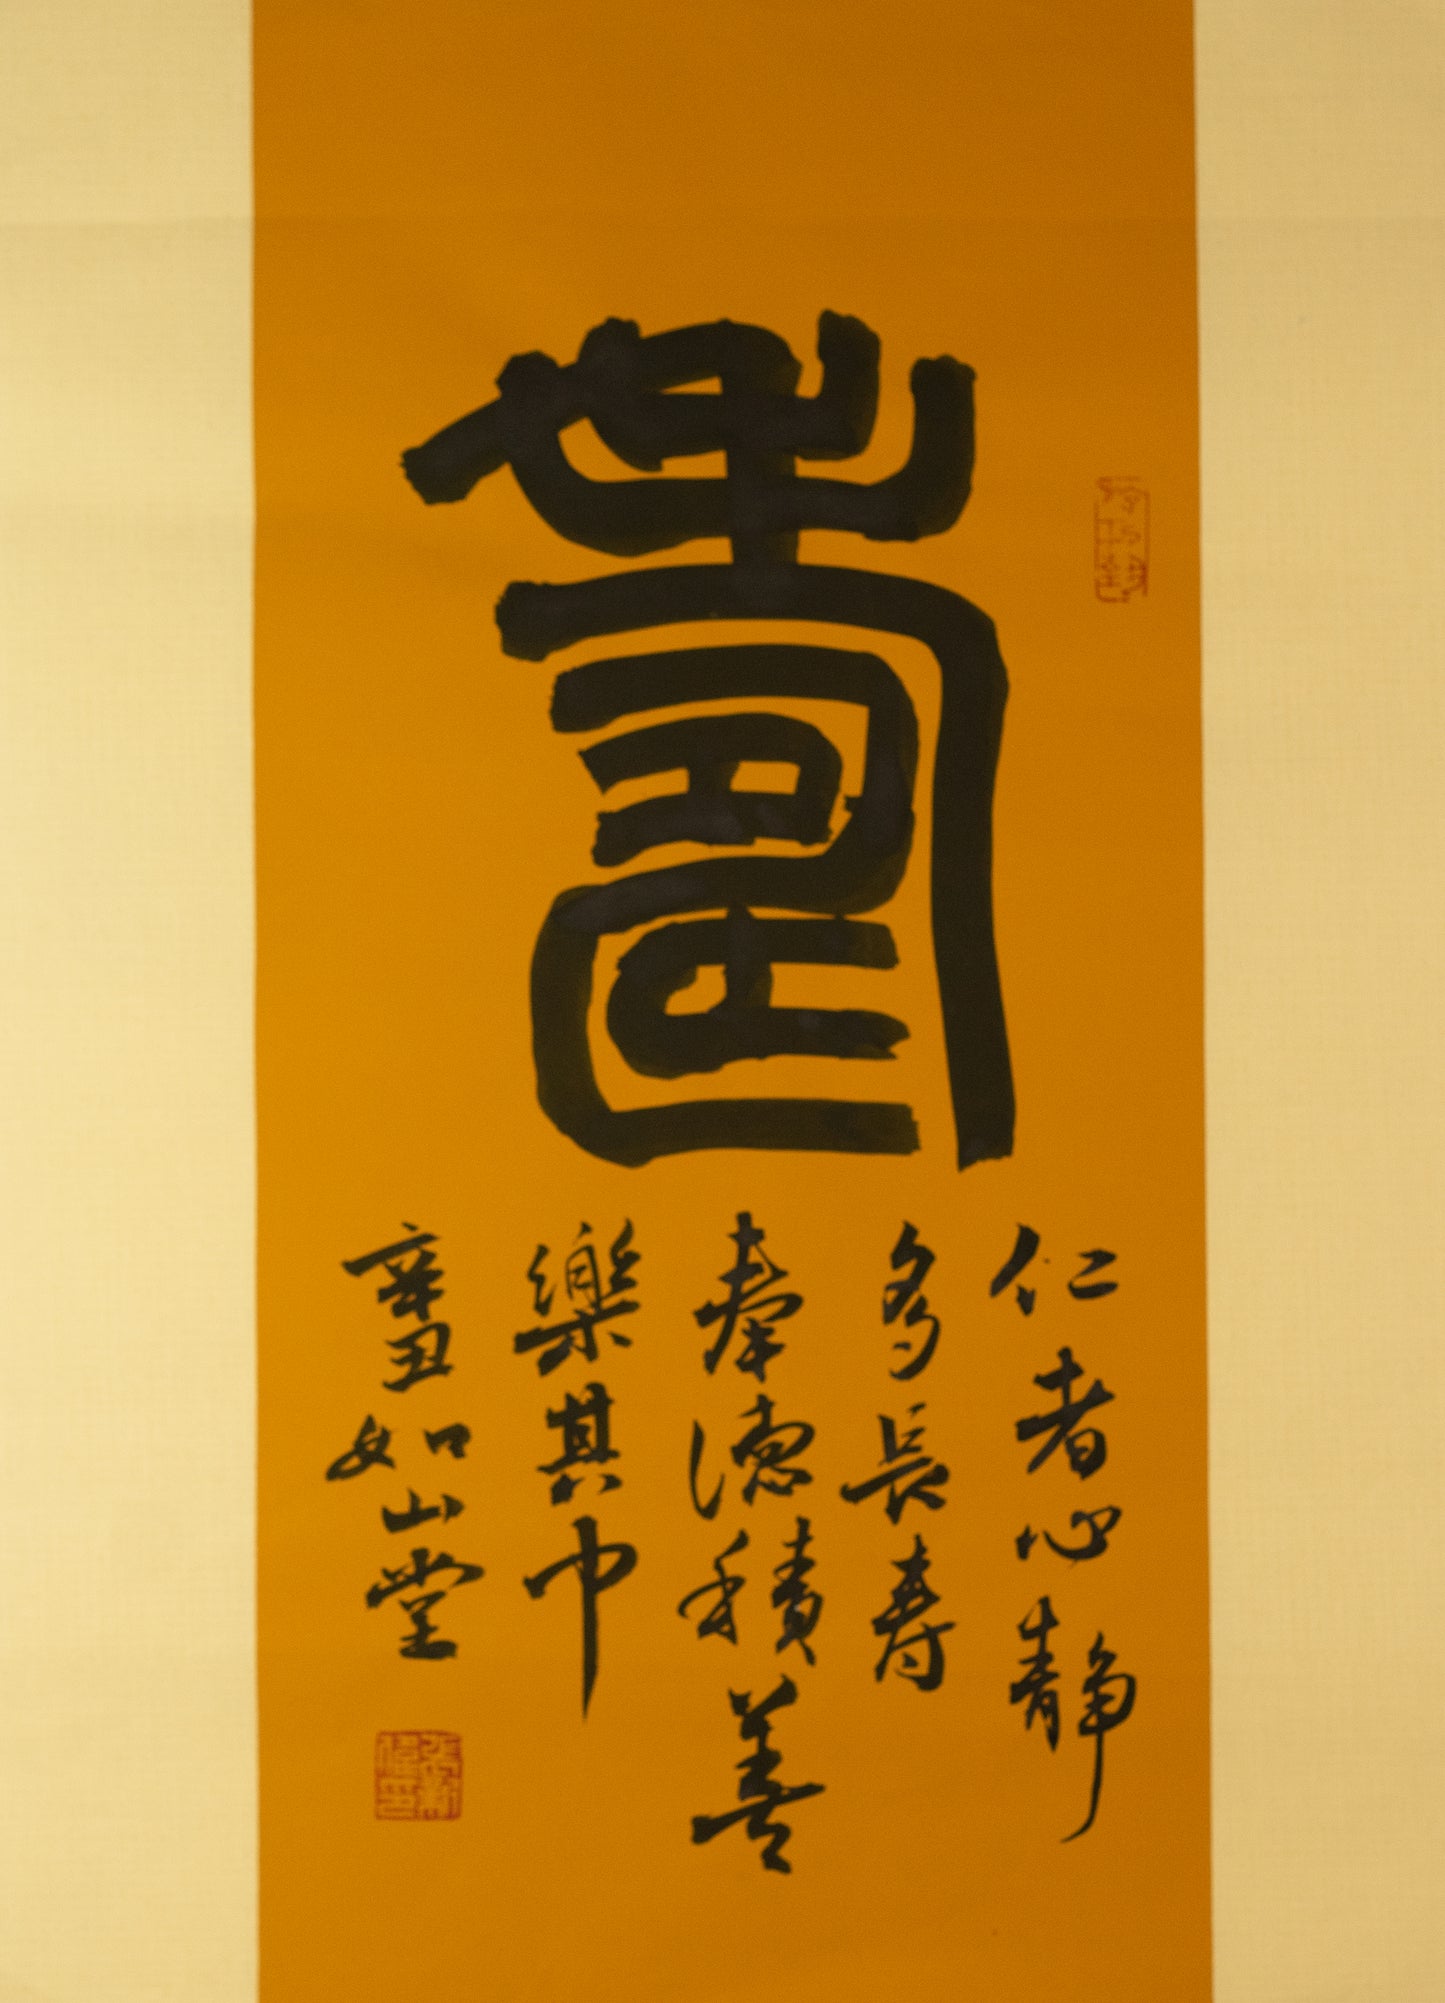 壽
仁者心静
多長寿
奉德積善
樂其中
辛丑 如山堂